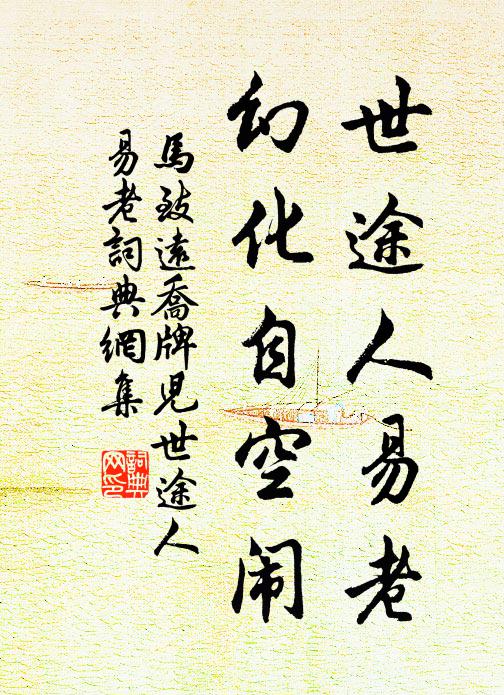 世途人易老
幻化自空闹
馬致遠喬牌児世途人
易老詞典網集
詞典
网印